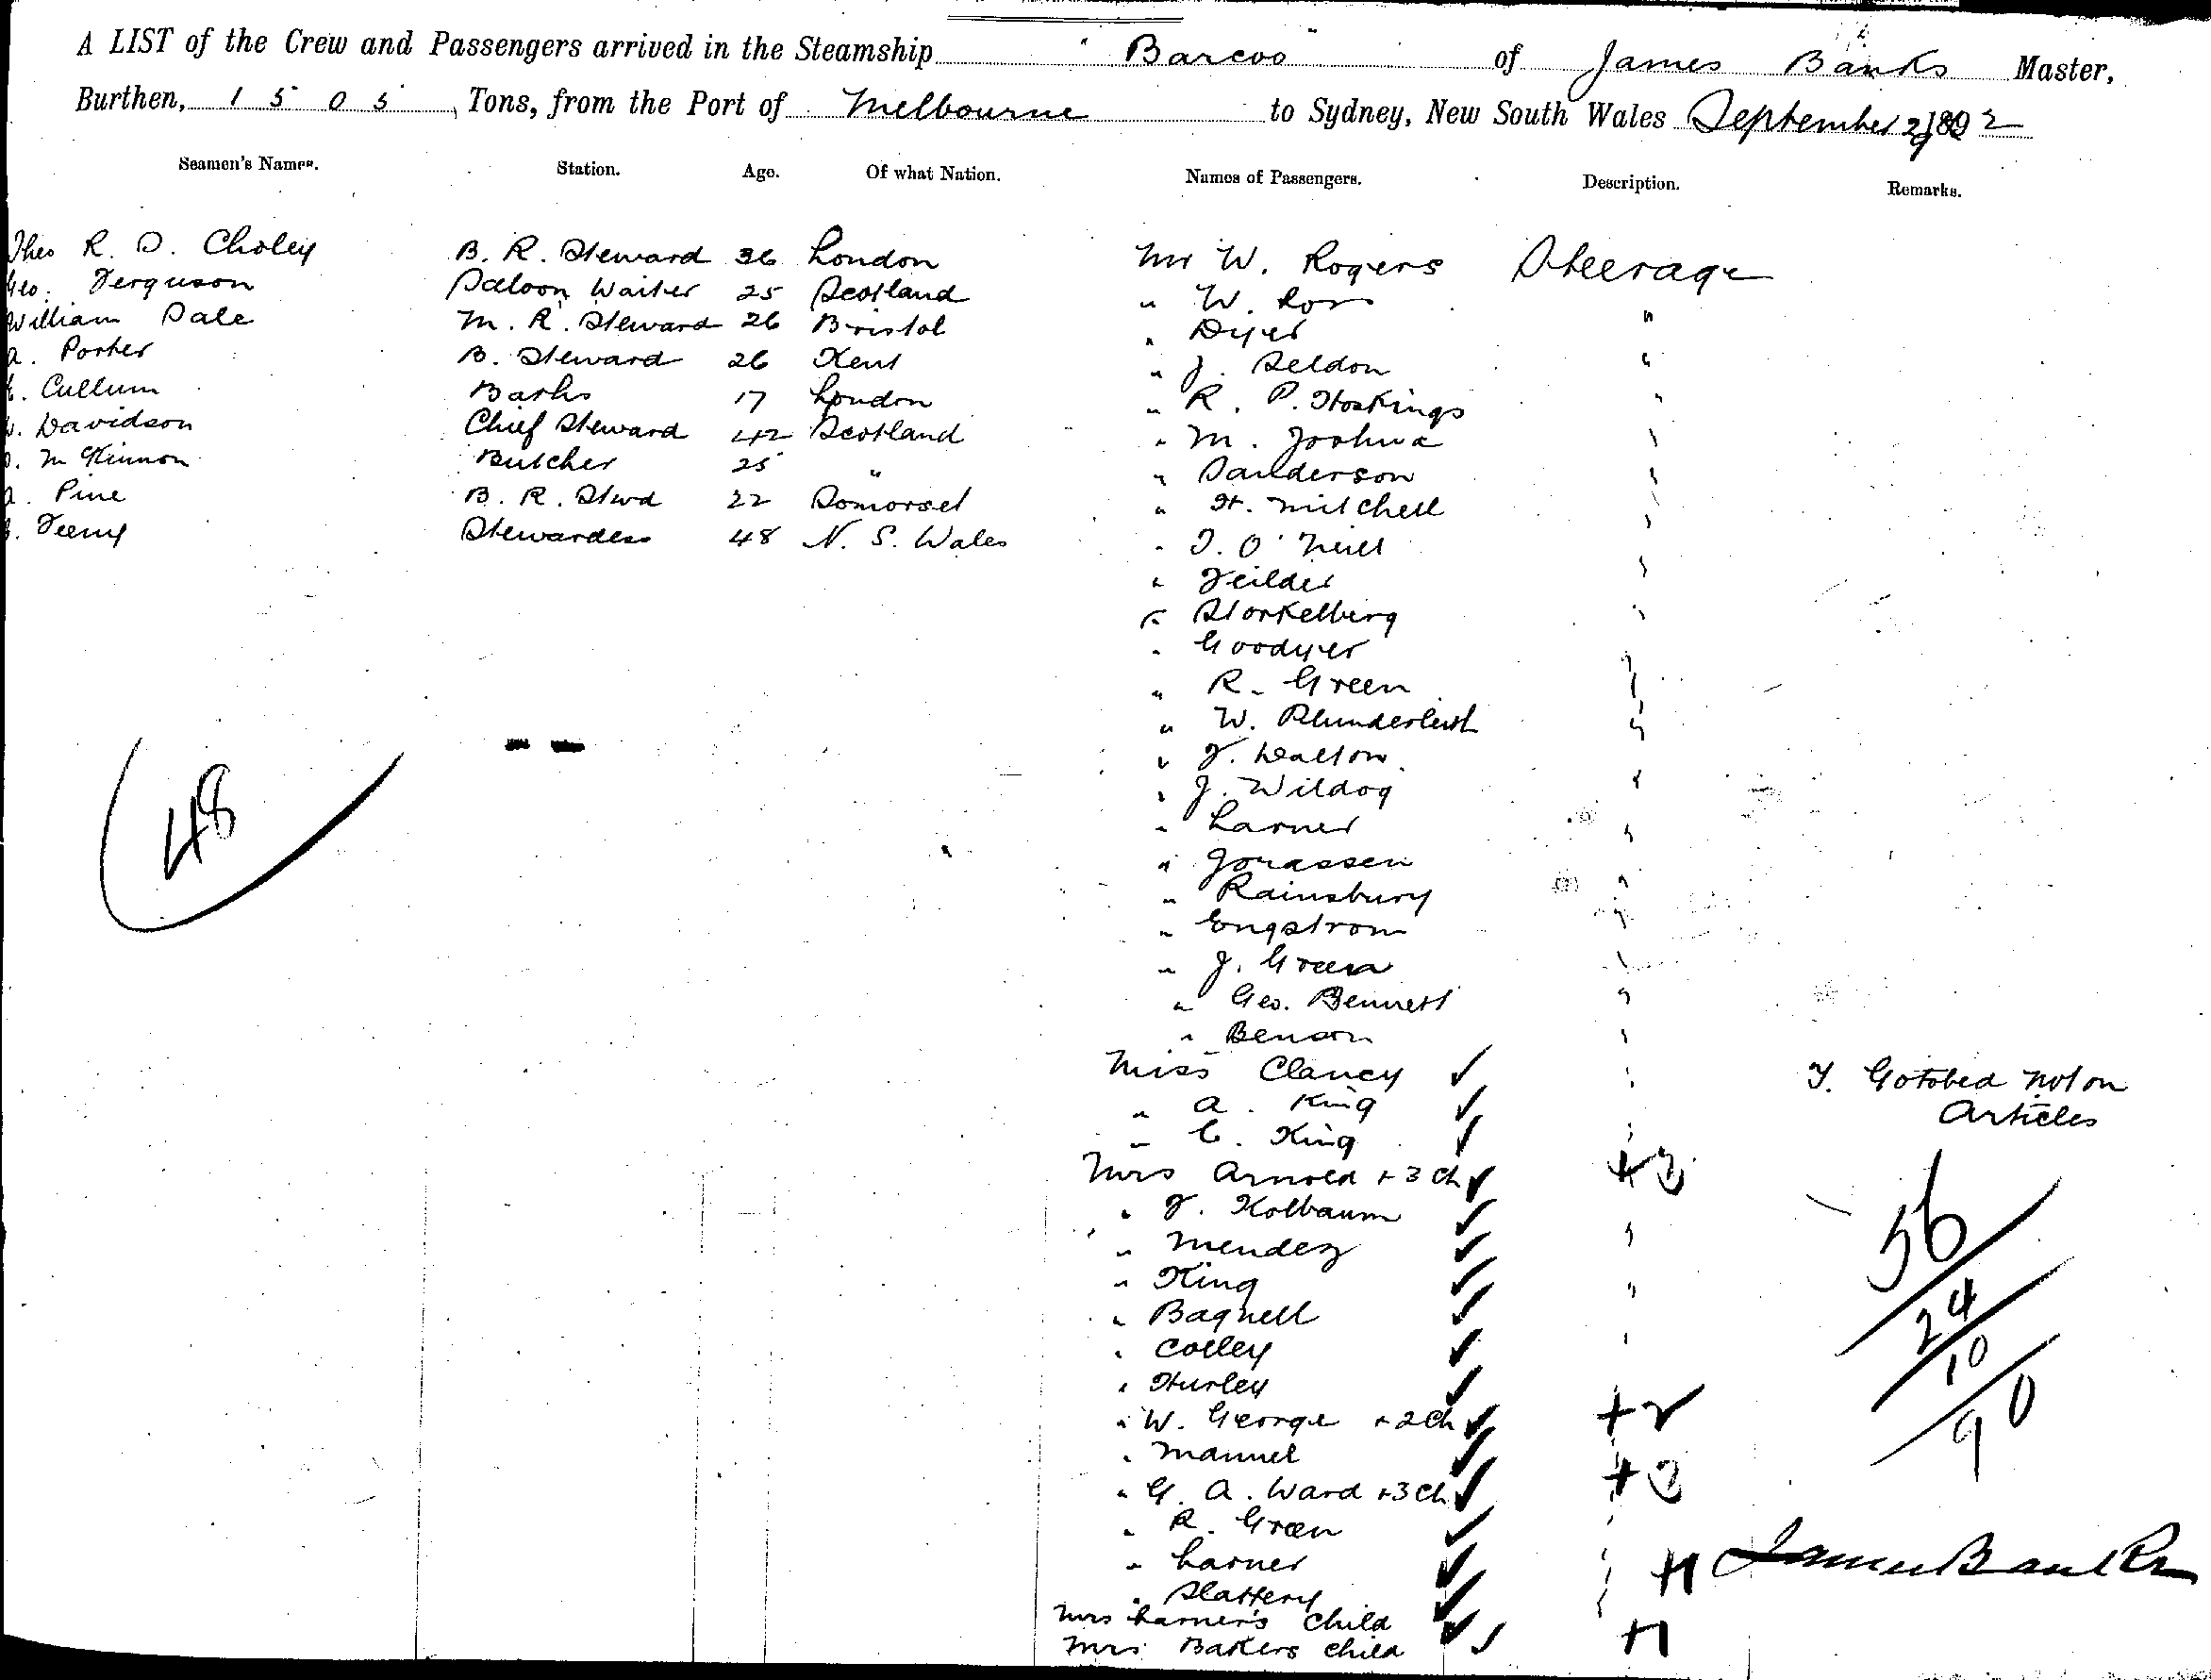 A LIST of the Crew and Passengers arrived in the Steamship "Barcoo" of James Banks Master,
Burthen, 1505 Tons, from the Port of Melbourne to Sydney, New South Wales September 1892
Seamen's Names. Station. Age. Of what Nation. Names of Passengers. Description. Remarks.
Theo R. D. Choley B. R. Steward 36 London
Geo. Ferguson Saloon Waiter 25 Scotland
William Dale M. R. Steward 26 Bristol
A. Porter B. Steward 26 Kent
Cullum Baths 17 London
Davidson Chief Steward 42 Scotland
McKinnon Butcher 25 "
A. Pine B. R. Stwd 22 Somerset
Stewardess 48 N. S. Wales
48
Mr W. Rogers Steerage
" W. Ross "
" Dyer "
" J. Seldon "
" R. P. Hoskings "
" M. Joshua "
" Sanderson "
" H. Mitchell "
" T. O'Neill "
" Feilder "
" Storkelberg "
" Goodyer "
" R. Green "
" W. Plunderleith "
" F. Dalton "
" J. Wildog "
" Larner "
" Gorassen "
" Rainsbury "
" Engstrom "
" J. Green "
" Geo. Bennett "
" Benson "
Miss Clancy "
" A. King "
" C. King "
Mrs Arnold + 3 Ch +3
" F. Kolbaum "
" Mendez "
" King "
" Bagnell "
" Colley "
" Hurley "
" W. George + 2 Ch +2
" Mannel "
" G. A. Ward + 3 Ch +3
" R. Green "
" Larner "
" Slattery "
Mrs Larner's Child +1
Mrs Bakers child +1
Gotobed not on
Articles
56
24
10
90
James Banks